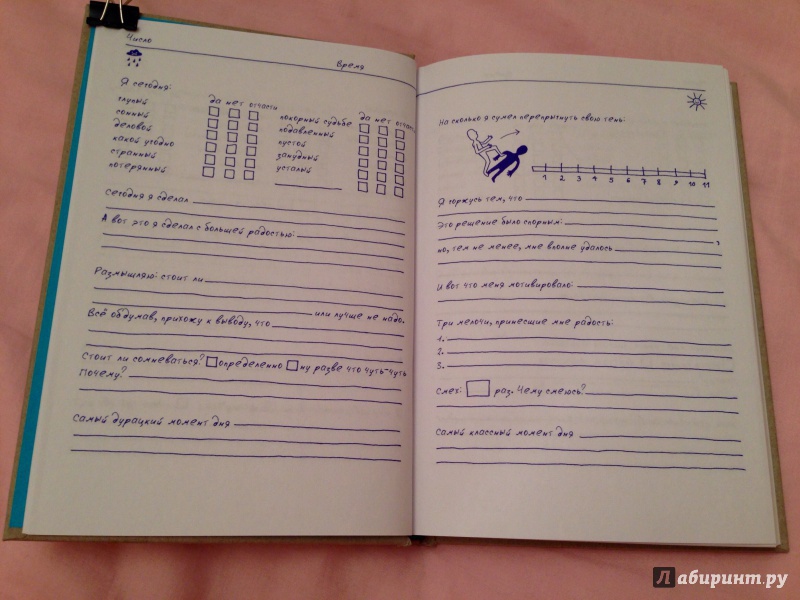 Число
Время
Я сегодня:
да нет отчасти
глупый
сонный
деловой
какой угодно
странный
потерянный
да нет отчасти
покорный судьбе
подавленный
пустой
занудный
усталый
Сегодня я сделал
А вот это я сделал с большей радостью:
Размышляю: стоит ли
или лучше не надо.
Всё обдумав, прихожу к выводу, что
Стоит ли сомневаться? определенно ну разве что чуть-чуть
Почему?
Самый дурацкий момент дня
На сколько я сумел перепрыгнуть свою тень:
1 2 3 4 5 6 7 8 9 10 11
Я горжусь тем, что
Это решение было спорным:
,
но, тем не менее, мне вполне удалось
И вот что меня мотивировало:
Три мелочи, принесшие мне радость:
1.
2.
3.
Смех: раз. Чему смеюсь?
Самый классный момент дня
Лабиринт.ру